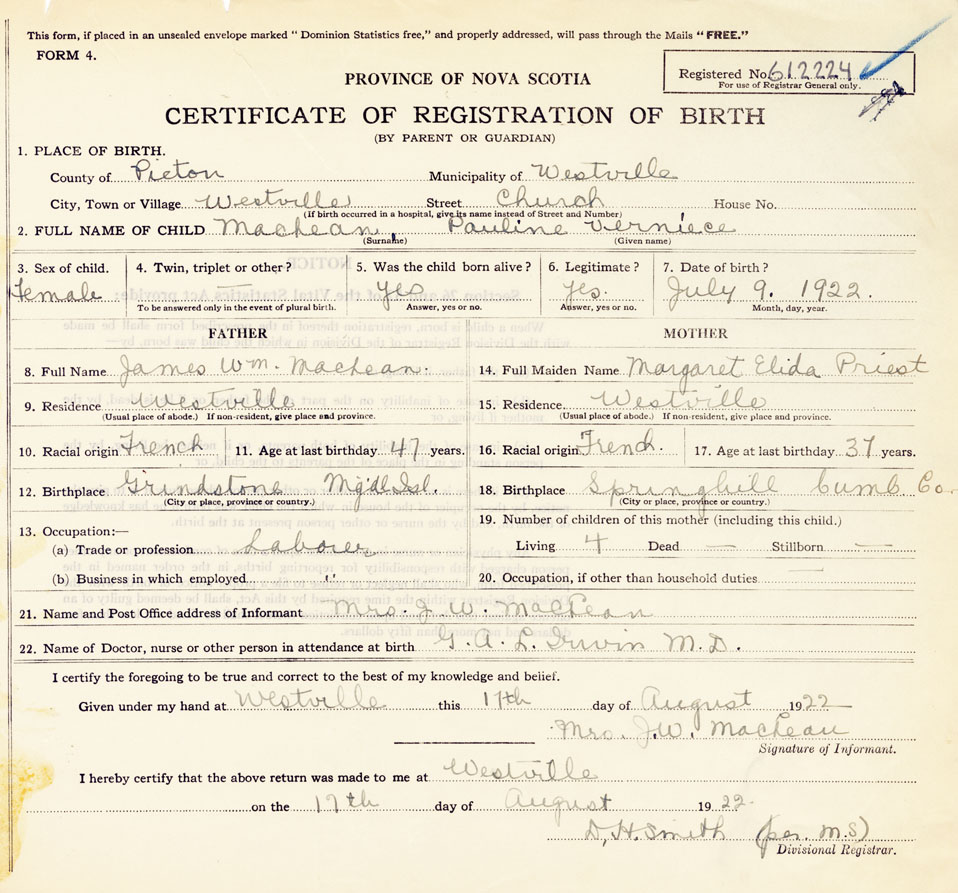 This form, if placed in an unsealed envelope marked "Dominion Statistics free," and properly addressed, will pass through the Mails "FREE."
FORM 4.
Registered No. 612224
For use of Registrar General only.
PROVINCE OF NOVA SCOTIA
CERTIFICATE OF REGISTRATION OF BIRTH
(BY PARENT OR GUARDIAN)
1. PLACE OF BIRTH.
County of Pictou Municipality of Westville
City, Town or Village Westville Street Church House No.
(If birth occurred in a hospital, give its name instead of Street and Number)
2. FULL NAME OF CHILD MacLean, Pauline Verniece
(Surname) (Given name)
3. Sex of child. 4. Twin, triplet or other? 5. Was the child born alive? 6. Legitimate? 7. Date of birth?
Female — Yes Yes. July 9. 1922.
To be answered only in the event of plural birth. Answer, yes or no. Answer, yes or no. Month, day, year.
FATHER MOTHER
8. Full Name James Wm. MacLean. 14. Full Maiden Name Margaret Elida Priest
9. Residence Westville 15. Residence Westville
(Usual place of abode.) If non-resident, give place and province. (Usual place of abode.) If non-resident, give place and province.
10. Racial origin French 11. Age at last birthday 47 years. 16. Racial origin French. 17. Age at last birthday 37 years.
12. Birthplace Grindstone Mg'dl Isl. 18. Birthplace Springhill Cumb Co.
(City or place, province or country.) (City or place, province or country.)
13. Occupation:— 19. Number of children of this mother (including this child.)
(a) Trade or profession Laborer Living 4 Dead — Stillborn —
(b) Business in which employed " 20. Occupation, if other than household duties —
21. Name and Post Office address of Informant Mrs. J. W. MacLean
22. Name of Doctor, nurse or other person in attendance at birth G. A. L. Irwin M.D.
I certify the foregoing to be true and correct to the best of my knowledge and belief.
Given under my hand at Westville this 17th day of August 1922
Mrs. J.W. MacLean
Signature of Informant.
I hereby certify that the above return was made to me at Westville
on the 17th day of August 1922.
D. H. Smith (per. M.S)
Divisional Registrar.